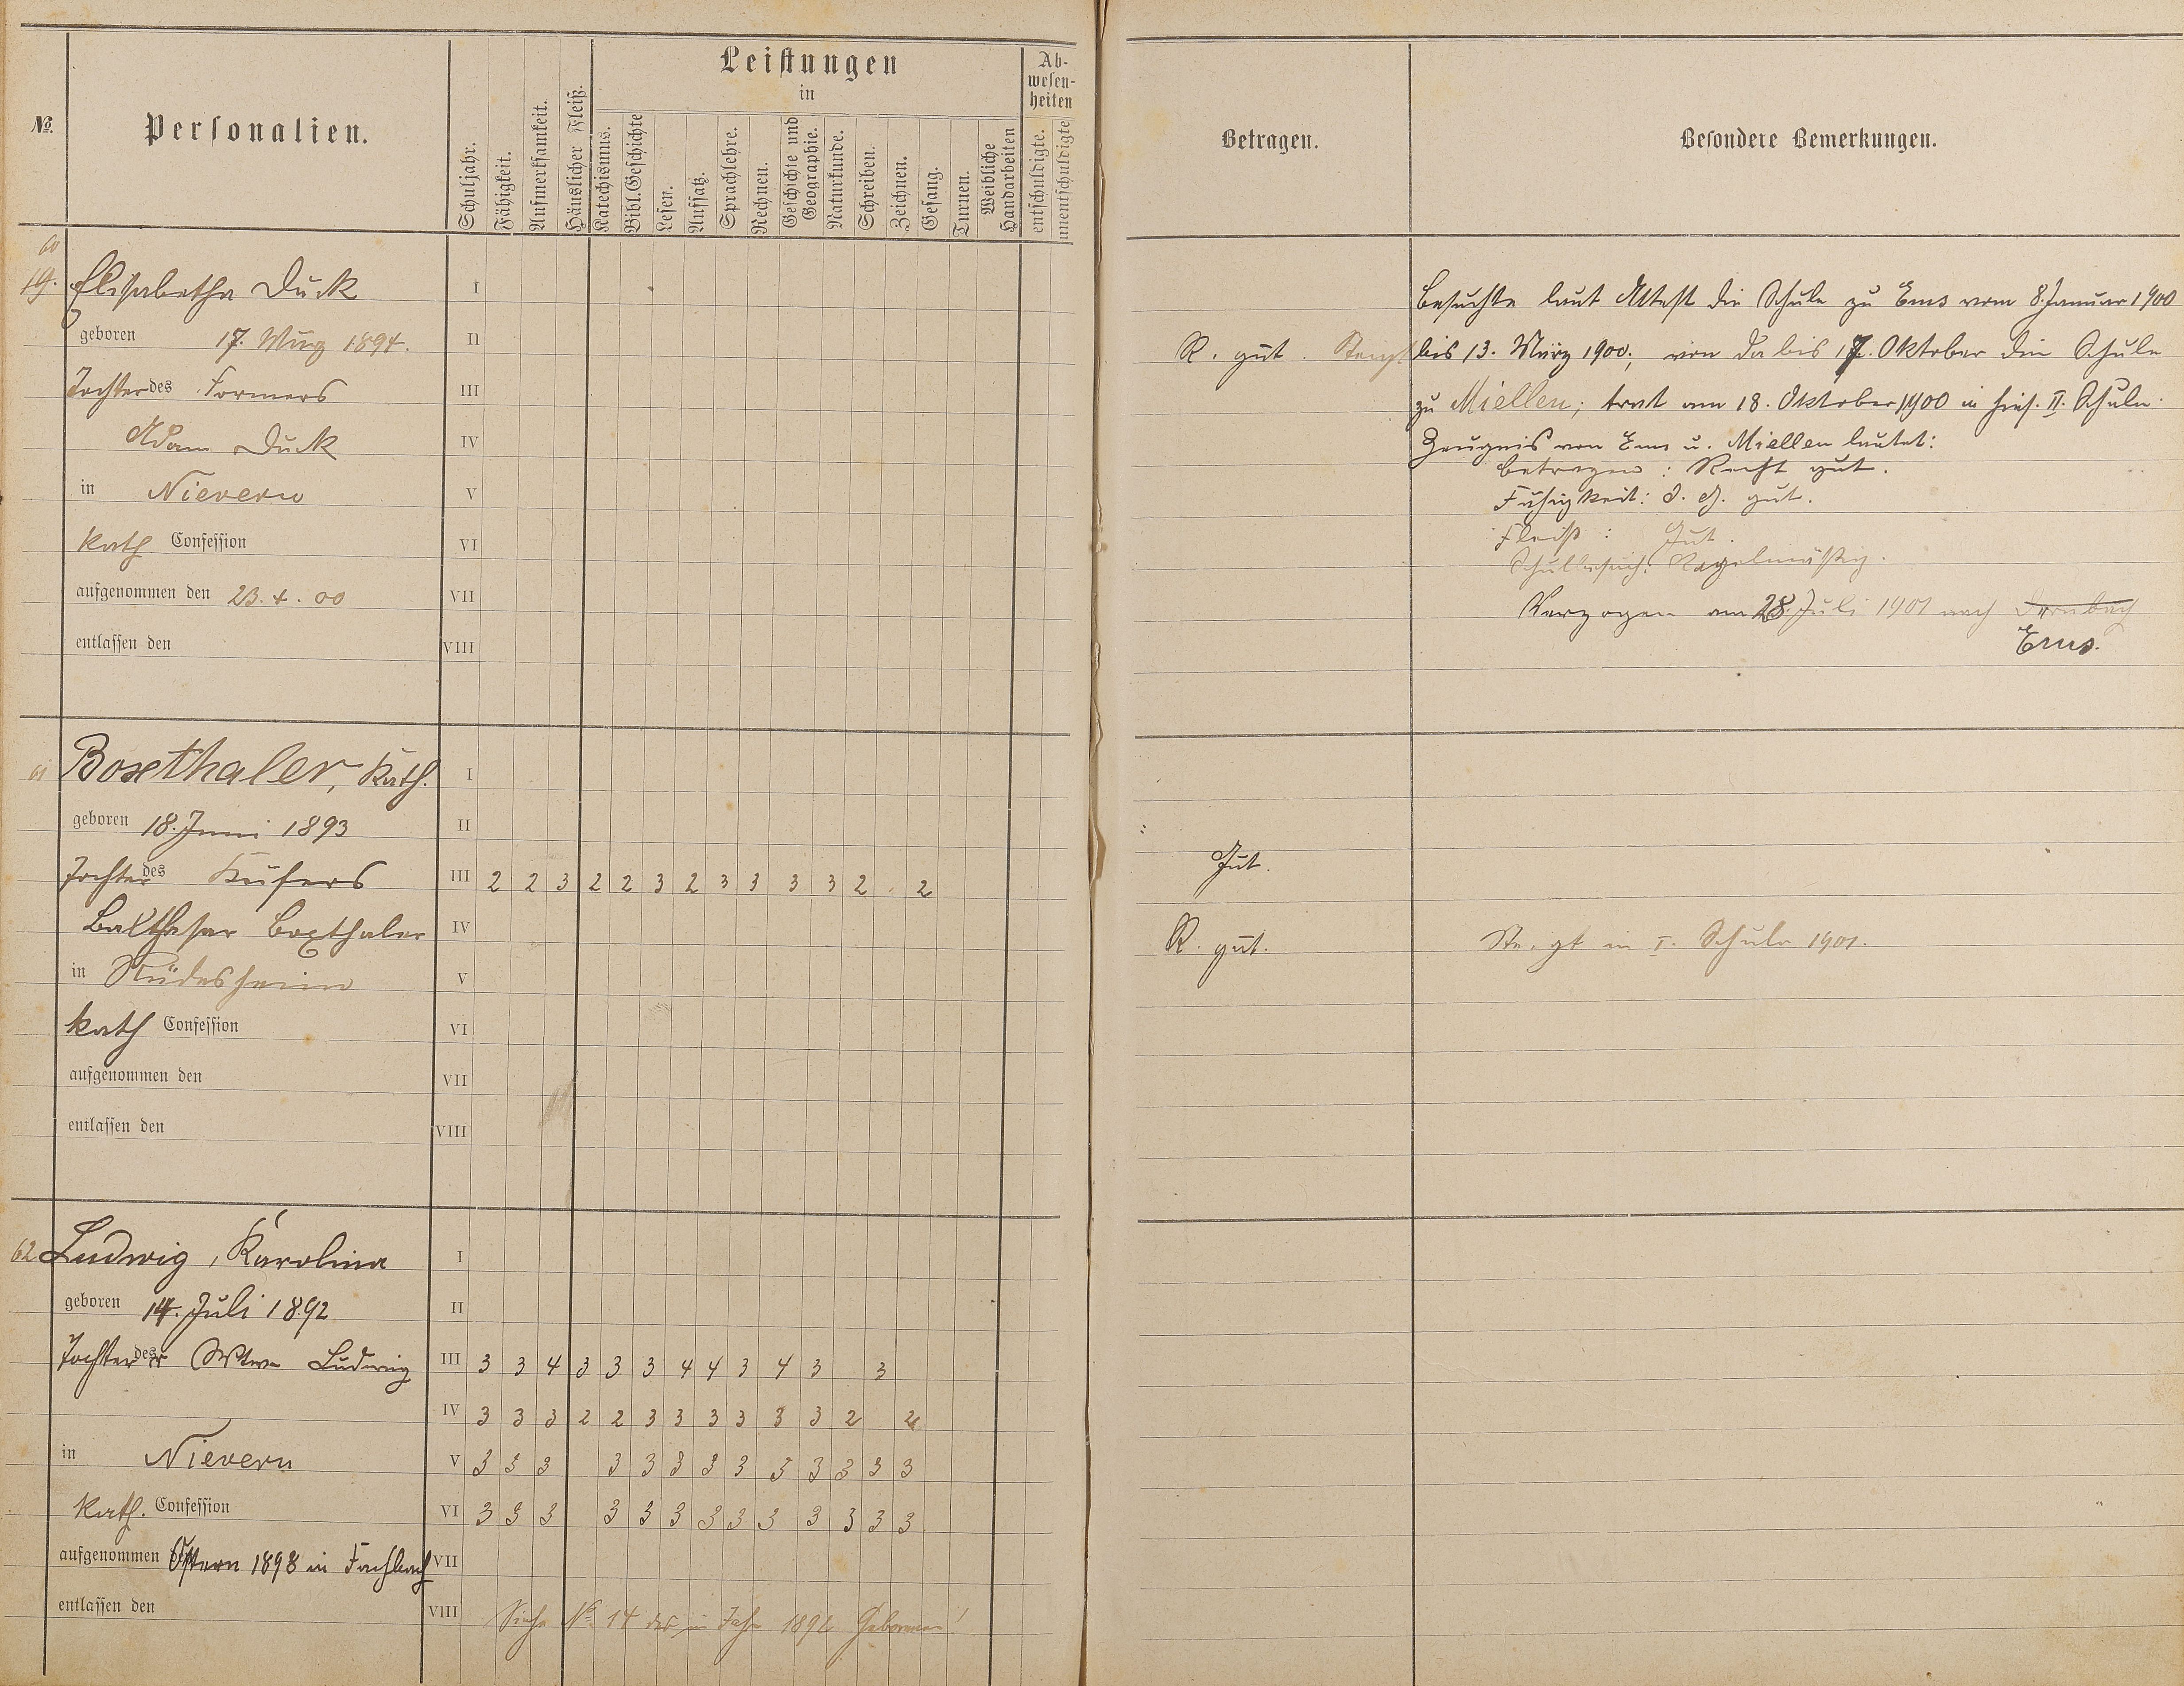 Leistungen
in
Ab-
wesen-
heiten
№
Personalien.
Schuljahr.
Fähigkeit.
Aufmerksamkeit.
Häuslicher Fleiß.
Katechismus.
Bibl. Geschichte
Lesen.
Aufsatz.
Sprachlehre.
Rechnen.
Geschichte und
Geographie.
Naturkunde.
Schreiben.
Zeichnen.
Gesang.
Turnen.
Weibliche
Handarbeiten
entschuldigte.
unentschuldigte
Betragen.
Besondere Bemerkungen.
60
19. Elisabetha Duck I
geboren 17. März 1894. II
Tochter des Formers III
Adam Duck IV
in Nievern V
kath Confession VI
aufgenommen den 23.4.00 VII
entlassen den VIII
R. gut.
Besuchte laut Attest die Schule zu Ems vom 8. Januar 1900
bis 13. März 1900; von da bis 17. Oktober die Schule
zu Miellen; trat am 18. Oktober 1900 in hies. II. Schule.
Zeugnis von Ems u. Miellen lautet:
Betragen: Recht gut.
Fähigkeit: gut.
Fleiß: Gut.
Schulbesuch: Regelmäßig.
Verzogen am 28. Juli 1901 nach Dernbach
Ems.
61 Boxthaler, Kath. I
geboren 18. Juni 1893 II
Tochter des Küfers III 2 2 3 2 2 3 2 3 3 3 3 2 2
Balthasar Boxthaler IV
in Rüdesheim V
kath Confession VI
aufgenommen den VII
entlassen den VIII
Gut.
R. gut.
Steigt in I. Schule 1901.
62 Ludwig, Karolina I
geboren 14. Juli 1892 II
Tochter der Wtwe Ludwig III 3 3 4 3 3 3 4 4 3 4 3 3
IV 3 3 3 2 2 3 3 3 3 3 3 2 2
in Nievern V 3 3 3 3 3 3 3 3 3 3 3 3 3
kath. Confession VI 3 3 3 3 3 3 3 3 3 3 3 3 3
aufgenommen Ostern 1898 in Fachbach VII
entlassen den VIII
Siehe № 14 der im Jahr 1892 Geborenen!